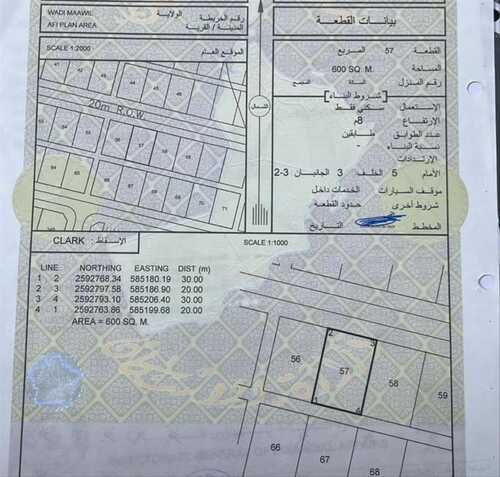 WADI MAAWIL الولاية
AFI PLAN AREA رقم الخريطة
المدينة / القرية
بيانات القطعة
SCALE 1:2000 الموقع العام
القطعة 57 المربع
المساحة 600 SQ. M.
رقم المنزل
شروط البناء
الإستعمال سكني فقط
الإرتفاع 8م
عدد الطوابق طابقين
نسبة البناء -
الإرتدادات
الأمام 5 الخلف 3 الجانبان 3-2
موقف السيارات الخدمات داخل
شروط أخرى حدود القطعة
المخطط التاريخ
الشمال
20m. R.O.W.
CLARK : الإسقاط
SCALE 1:1000
LINE NORTHING EASTING DIST (m)
1 2 2592768.34 585180.19 30.00
2 3 2592797.58 585186.90 20.00
3 4 2592793.10 585206.40 30.00
4 1 2592763.86 585199.68 20.00
AREA = 600 SQ. M.
2 3
56 57 58 59
1 4
66 67 68